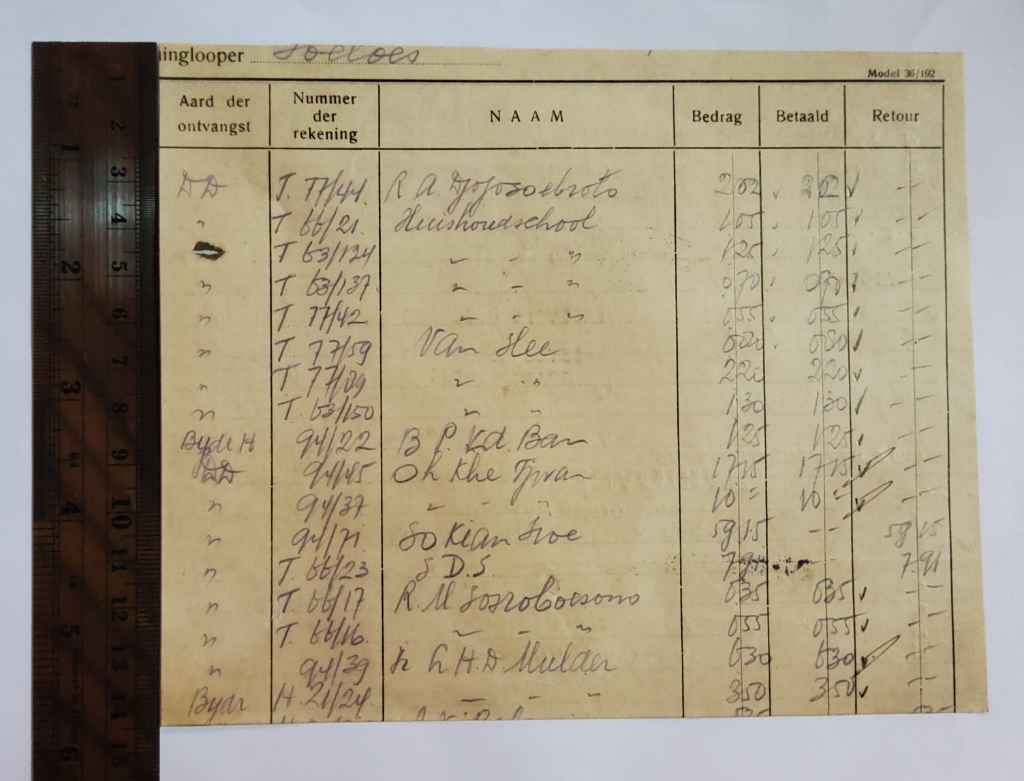 inglooper Soetoes
Model 36/192
Aard der ontvangst Nummer der rekening NAAM Bedrag Betaald Retour
DD T. 77/41. R A. Djojosoebroto 2 02 2 02 --
" T 66/21. Huishoudschool 1 05 1 05 --
T 63/134 " - " 1 25 1 25 --
" T 63/137 " - " 0 70 0 70 --
" T. 77/42 " - " 0 55 0 55 --
" T. 77/59 Van Hee --
" T 77/89 " " 2 20 2 20 --
" T. 63/150 " " 1 30 1 30 --
Bydr H 94/22 B P. Kd. Ban 1 25 1 25 --
DD 94/45 Oh Khe Tjwan 17 15 17 15 --
" 94/37 - - " 10 = 10 = --
" 94/71 So Kian 59 15 -- 59 15
" T. 66/23 S D.S. 7 91 -- 7 91
" T. 66/17 R. M Sosroboesono 6 35 6 35 --
" T. 66/16. " - " 0 55 0 55 --
" 94/39 H. D. Mulder 6 30 6 30 --
Bydr H. 21/24. - " " 3 50 3 50